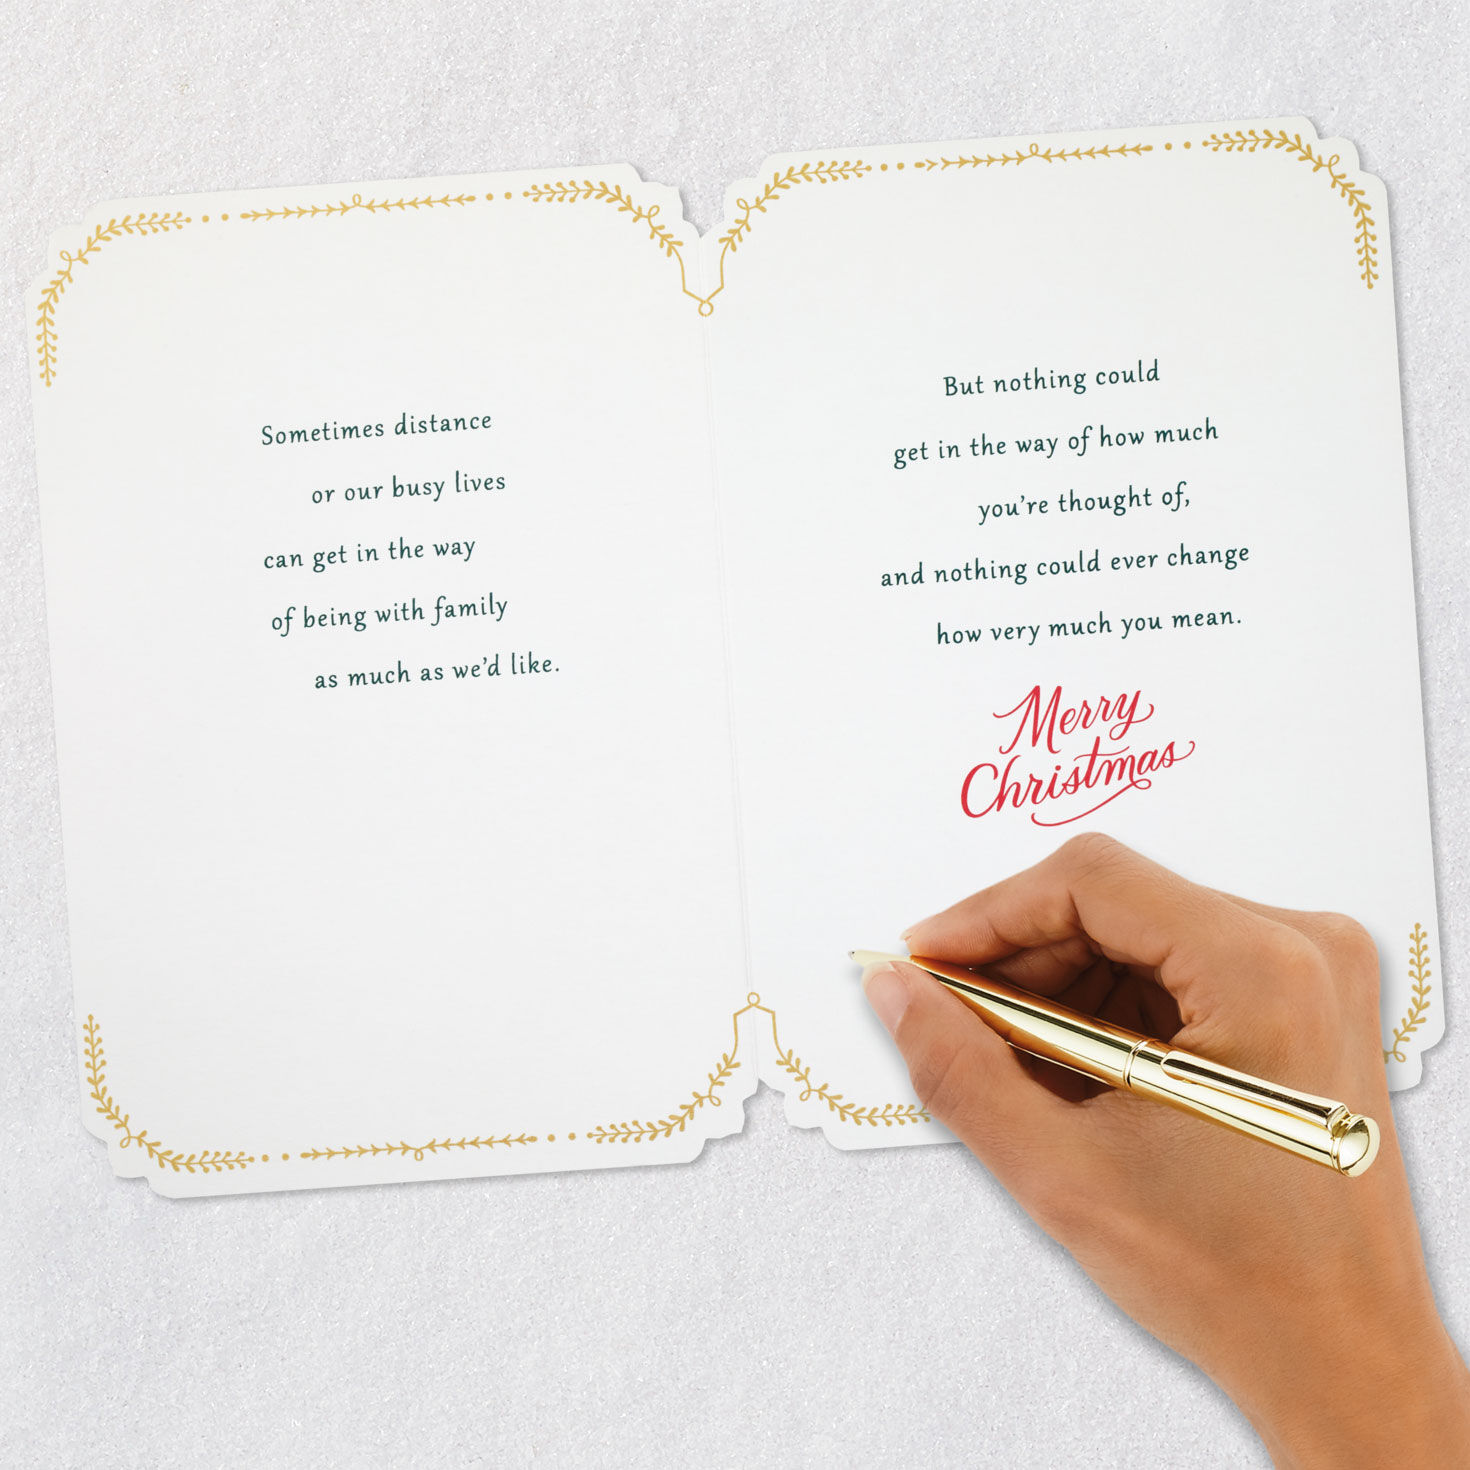 Sometimes distance
or our busy lives
can get in the way
of being with family
as much as we'd like.
But nothing could
get in the way of how much
you're thought of,
and nothing could ever change
how very much you mean.
Merry
Christmas